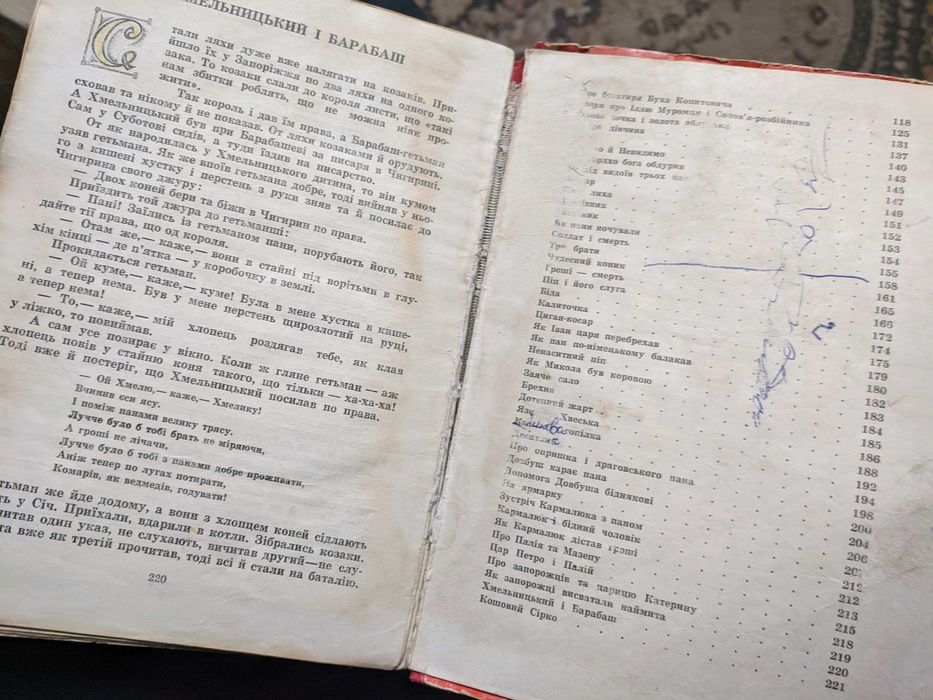 ХМЕЛЬНИЦЬКИЙ І БАРАБАШ
Стали ляхи дуже вже налягати на козаків. При-
йшло їх у Запоріжжя по два ляхи на одного ко-
зака. То козаки слали до короля листи, що «такі
нам збитки роблять, що не можна ніяк про-
жити».
Так король і дав їм права, а Барабаш-гетьман
сховав та нікому й не показав. От ляхи козаками й орудують.
А Хмельницький був при Барабашеві за писаря в Чигирині.
Сам у Суботові сидів, а туди їздив на писарство.
От як народилась у Хмельницького дитина, то він кумом
узяв гетьмана. Як же впоїв гетьмана добре, тоді вийняв у ньо-
го з кишені хустку і перстень з руки зняв та й посилає до
Чигирина свого джуру:
— Двох коней бери та біжи в Чигирин по права.
Приїздить той джура до гетьманші:
— Пані! Заїлись із гетьманом пани, порубають його, так
дайте тії права, що од короля.
— Отам же,— каже,— вони в стайні під ворітьми в глу-
хім кінці — де п'ятка — у коробочку в землі.
Прокидається гетьман.
— Ой куме,— каже,— куме! Була в мене хустка в кише-
ні, а тепер нема. Був у мене перстень щирозлотий на руці,
а тепер нема!
— То,— каже,— мій хлопець роздягав тебе, як клав
у ліжко, то повиймав.
А сам усе позирає у вікно. Коли ж гляне гетьман — аж
хлопець повів у стайню коня такого, що тільки — ха-ха-ха!
Тоді вже й постеріг, що Хмельницький посилав по права.
— Ой Хмелю,— каже,— Хмелику!
Вчинив єси ясу.
І поміж панами велику трясу.
Лучче було б тобі брать не міряючи,
А гроші не лічачи,
Лучче було б тобі з панами добре проживати,
Аніж тепер по лугах потирати,
Комарів, як ведмедів, годувати!
тьман же йде додому, а вони з хлопцем коней сідлають
ть у Січ. Приїхали, вдарили в котли. Зібрались козаки.
читав один указ, не слухають, вичитав другий—не слу-
та вже як третій прочитав, тоді всі й стали на баталію.
220
ро богатиря Буха Копитовича 118
про Іллю Муромця і Солов'я-розбійника 125
дочка і золота 131
дівчина 137
о й Невидимо 140
бога обдурив 143
видоїв трьох 145
147
лиха 149
151
152
Як пани ночували 153
Солдат і смерть 154
Три брати 155
Чудесний коник 158
Гроші — смерть 161
Піп і його слуга 165
Біда 166
Калиточка 172
Циган-косар 174
Як Іван царя перебрехав 175
Як пан по-німецькому балакав 179
Ненаситний піп 180
Як Микола був коровою 182
Заяче сало 183
Брехня 184
Дотепний жарт 185
Хвеська 186
сопілка 188
Десятина 192
Про опришка і драговського пана 194
Довбуш карає пана 198
Допомога Довбуша біднякові 200
На ярмарку 204
Зустріч Кармалюка з паном 206
Кармалюк і бідний чоловік
Як Кармалюк дістав гроші 212
Про Палія та Мазепу 212
Цар Петро і Палій 213
Про запорожців та царицю Катерину 215
Як запорожці висватали наймита 218
Хмельницький і Барабаш 219
Кошовий Сірко 220
221